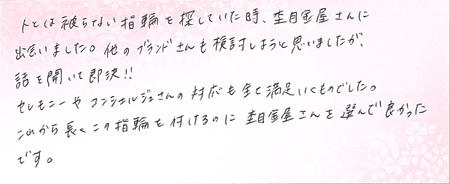 人とは被らない指輪を探していた時、杢目金屋さんに
出会いました。他のブランドさんも検討しようと思いましたが、
話を聞いて即決!!
セレモニーやコンシェルジュさんの対応も全て満足いくものでした。
これから長くこの指輪を付けるのに杢目金屋さんを選んで良かった
です。